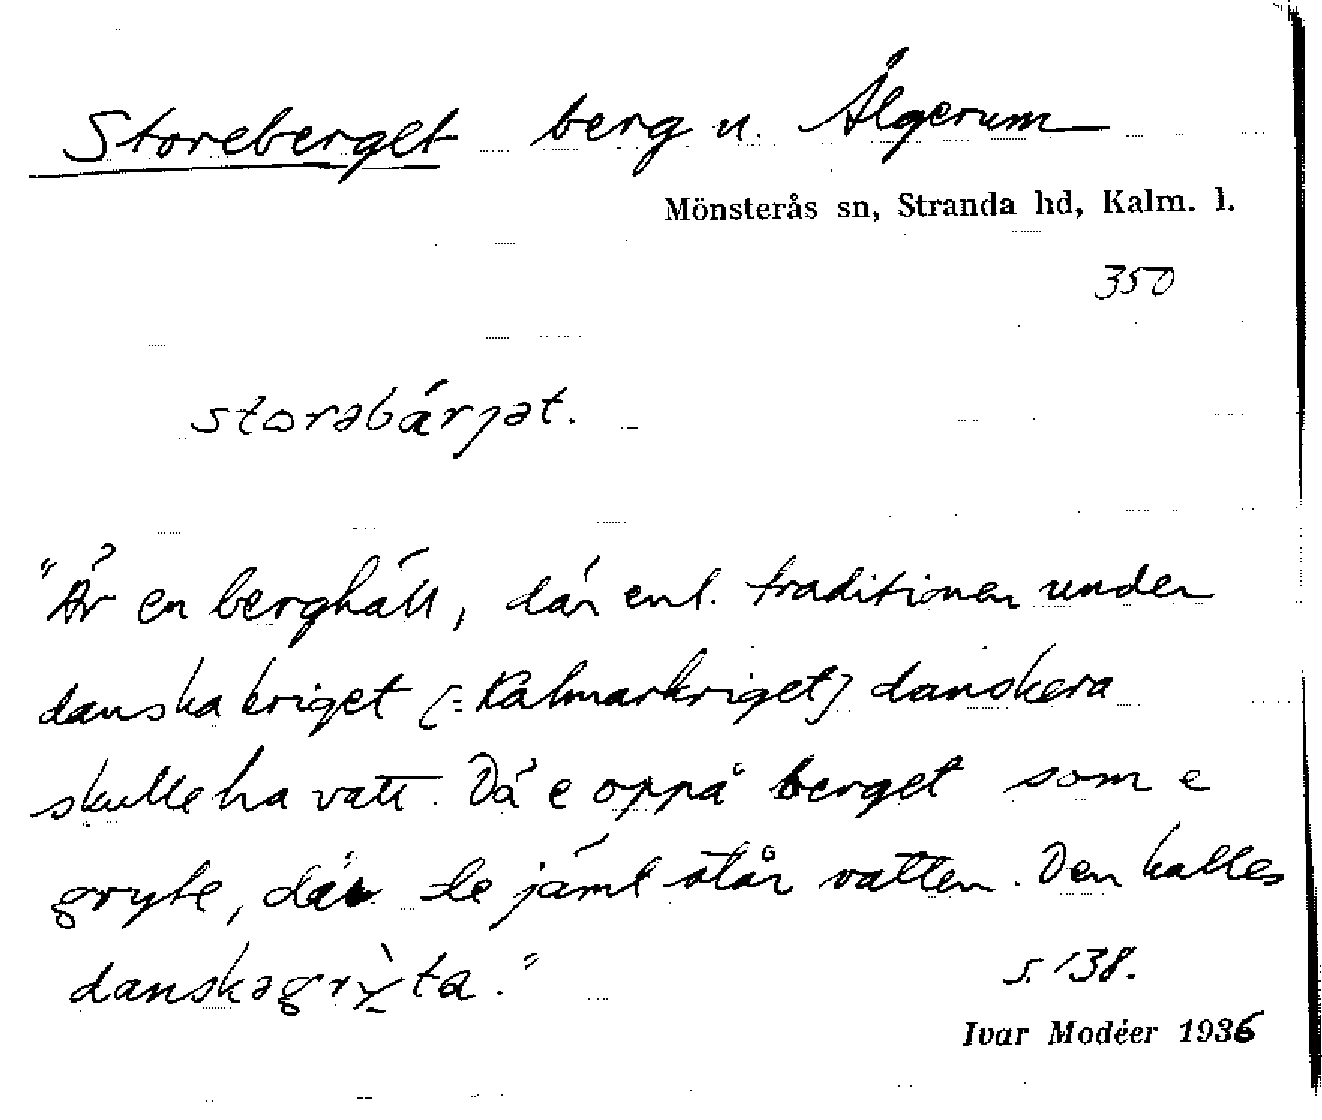 Storeberget berg u. Älgerum
Mönsterås sn, Stranda hd, Kalm. l.
350
storəbärjət.
"Är en berghäll, där enl. traditionen under
danska kriget (= Kalmarkriget) danskera
skulle ha vatt. Dä e oppå berget som e
gryte, där de jämt står vatten. Den kalles
danskəgrỳta."
s. 138.
Ivar Modéer 1936